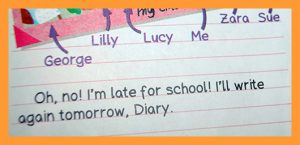 my
Zara Sue
Lilly Lucy Me
George
Oh, no! I'm late for school! I'll write
again tomorrow, Diary.